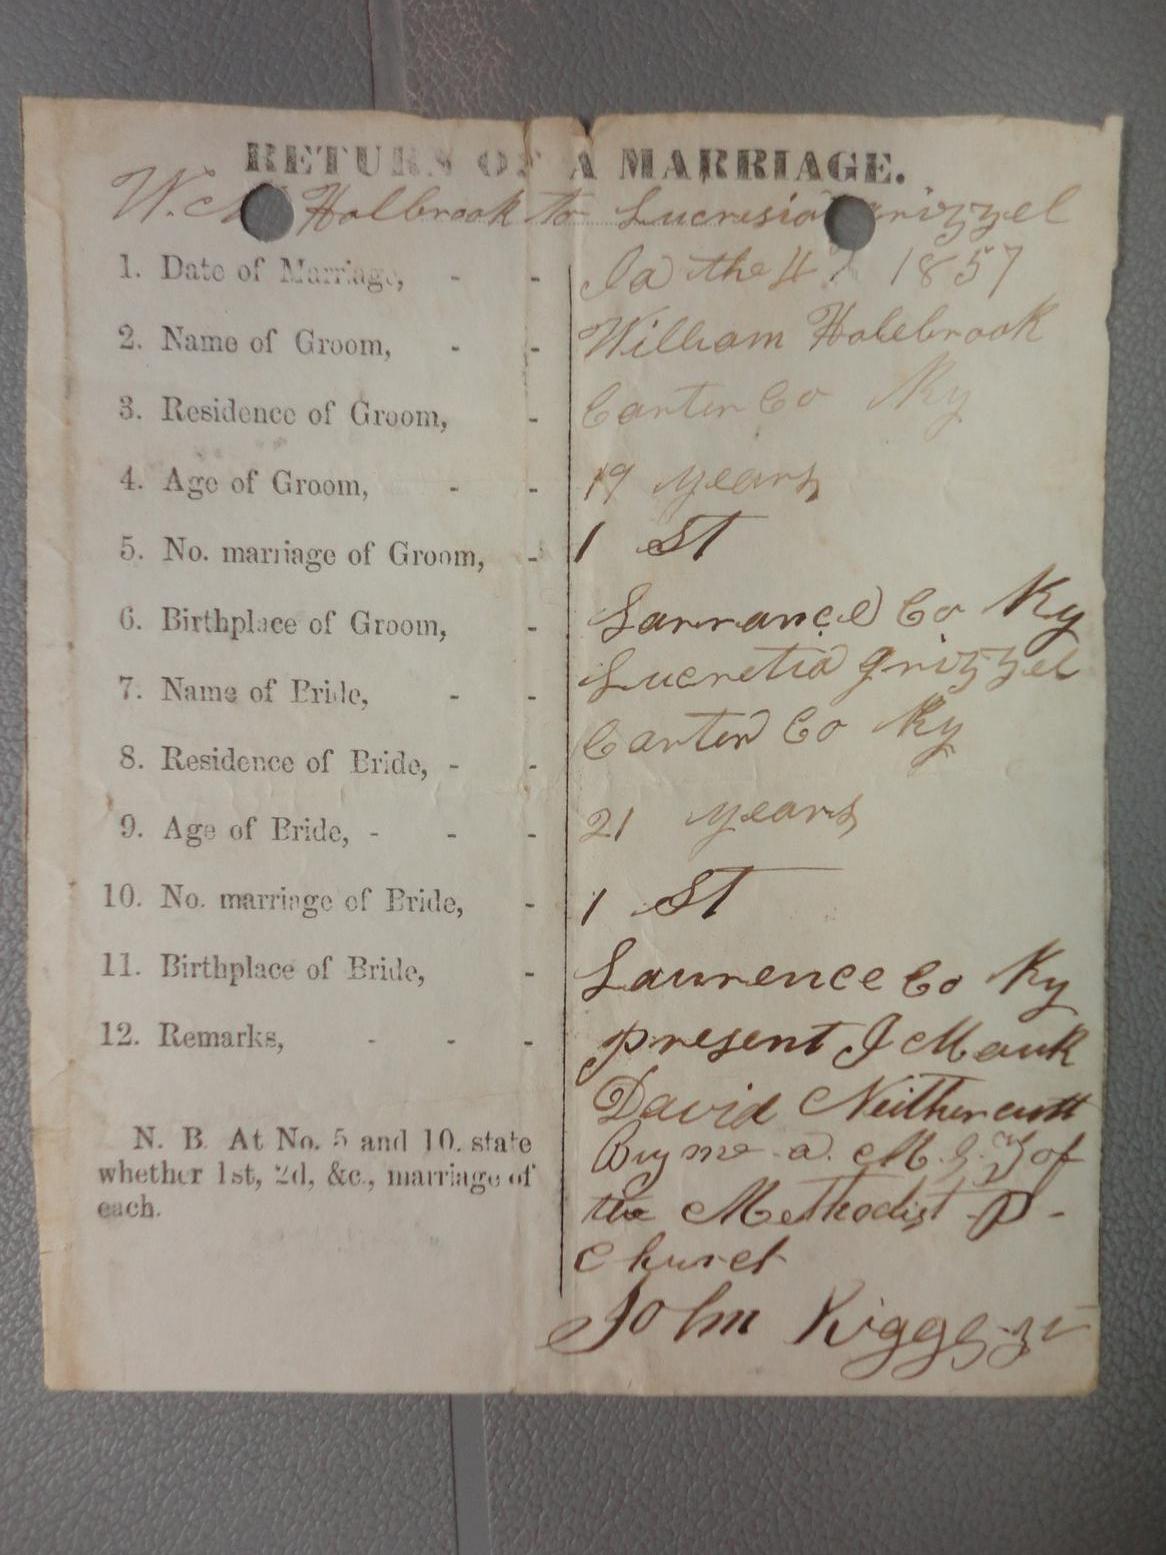 RETURN OF A MARRIAGE.
Holbrook to Lucresia
1. Date of Marriage, - - the 4 1857
2. Name of Groom, - - William Holebrook
3. Residence of Groom, - Carter Co Ky
4. Age of Groom, - - 19 years
5. No. marriage of Groom, - 1 St
6. Birthplace of Groom, - Larrance Co Ky
7. Name of Bride, - - Lucretia grizzel
8. Residence of Bride, - - Carter Co Ky
9. Age of Bride, - - - 21 years
10. No. marriage of Bride, - 1 St
11. Birthplace of Bride, - Laurence Co Ky
12. Remarks, - - - present J Mauk
David Neithercutt
By me a. M. G. of
N. B. At No. 5 and 10. state
whether 1st, 2d, &c., marriage of
each.
the Methodist P-
Church
John Riggs